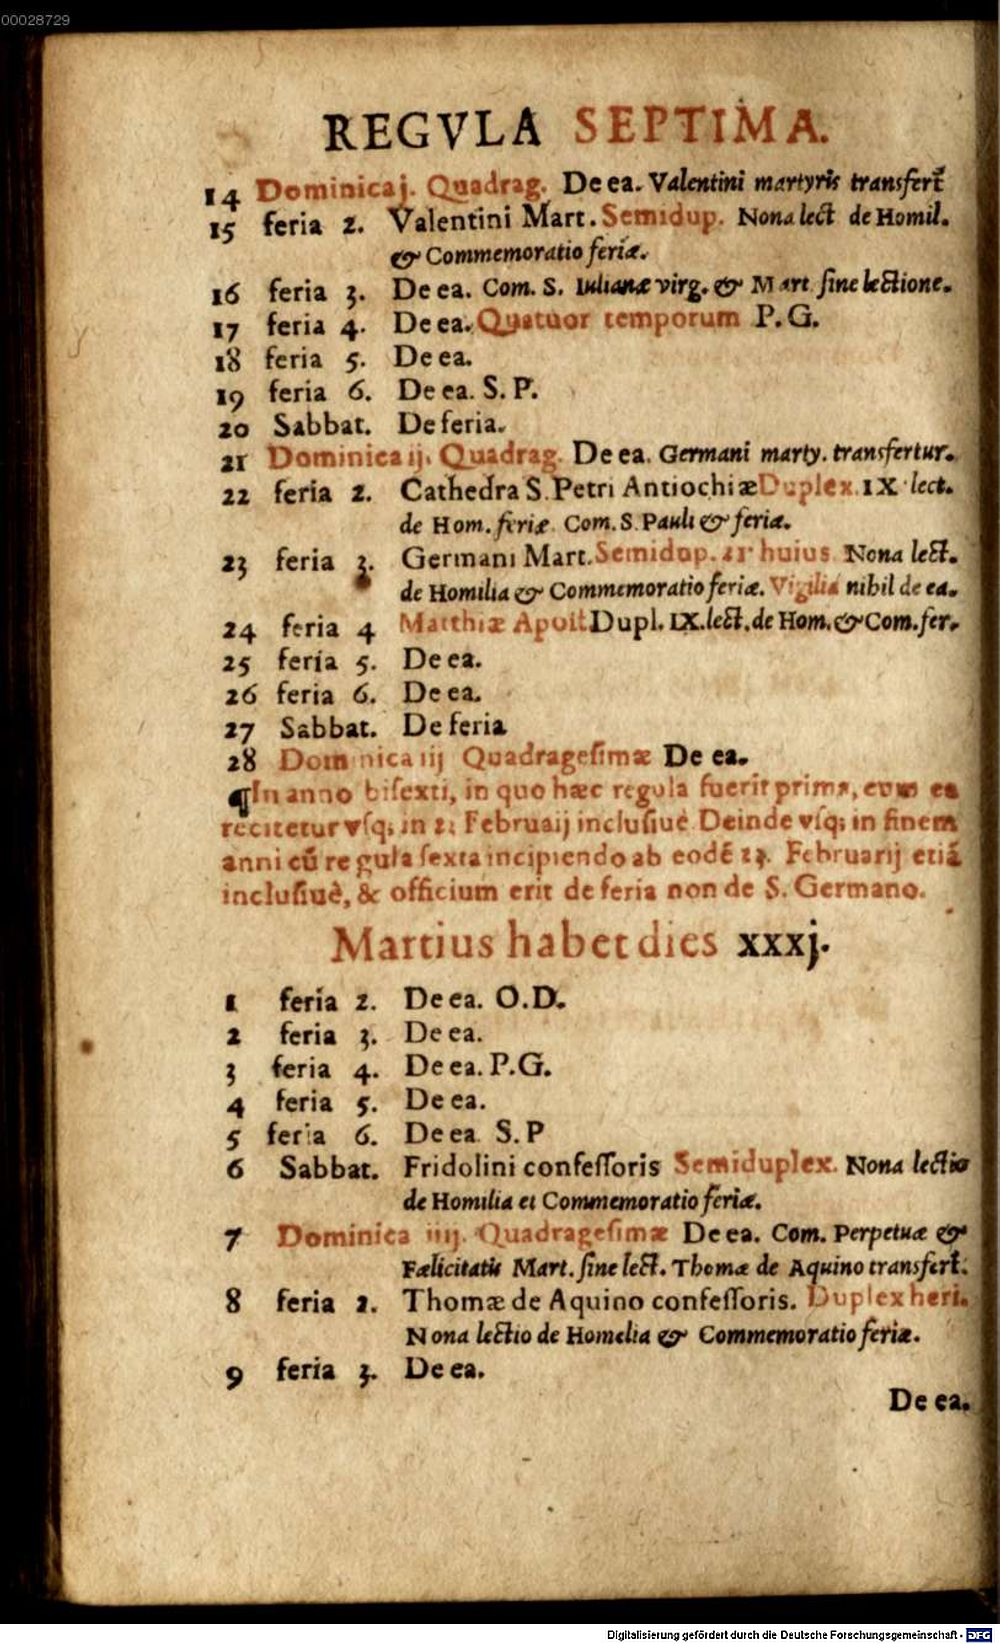 00028729
REGVLA SEPTIMA.
14 Dominica j. Quadrag. De ea. Valentini martyris transfert̃
15 feria 2. Valentini Mart. Semidup. Nona lect de Homil.
& Commemoratio feriæ.
16 feria 3. De ea. Com. S. Iulianæ virg. & Mart sine lectione.
17 feria 4. De ea. Quatuor temporum P. G.
18 feria 5. De ea.
19 feria 6. De ea. S. P.
20 Sabbat. De feria.
21 Dominica ij. Quadrag. De ea. Germani marty. transfertur.
22 feria 2. Cathedra S. Petri Antiochiæ Duplex. IX lect.
de Hom. feriæ Com. S. Pauli & feriæ.
23 feria 3. Germani Mart. Semidup. 21 huius Nona lect.
de Homilia & Commemoratio feriæ. Vigilia nihil de ea.
24 feria 4 Matthiæ Apost. Dupl. IX. lect. de Hom. & Com. fer.
25 feria 5. De ea.
26 feria 6. De ea.
27 Sabbat. De feria
28 Dominica iij Quadragesimæ De ea.
¶ In anno bisexti, in quo hæc regula fuerit prima, eum ea
recitetur vsq; in Februaij inclusiuè Deinde vsq; in finem
anni cũ regula sexta incipiendo ab eodẽ Februarij etiã
inclusiuè, & officium erit de feria non de S. Germano.
Martius habet dies xxxj.
1 feria 2. De ea. O. D.
2 feria 3. De ea.
3 feria 4. De ea. P. G.
4 feria 5. De ea.
5 feria 6. De ea S. P
6 Sabbat. Fridolini confessoris Semiduplex. Nona lectio
de Homilia et Commemoratio feriæ.
7 Dominica iiij. Quadragesimæ De ea. Com. Perpetuæ &
Fælicitatis Mart. sine lect. Thomæ de Aquino transfert̃.
8 feria 2. Thomæ de Aquino confessoris. Duplex heri.
Nona lectio de Homelia & Commemoratio feriæ.
9 feria 3. De ea.
De ea.
Digitalisierung gefördert durch die Deutsche Forschungsgemeinschaft - DFG